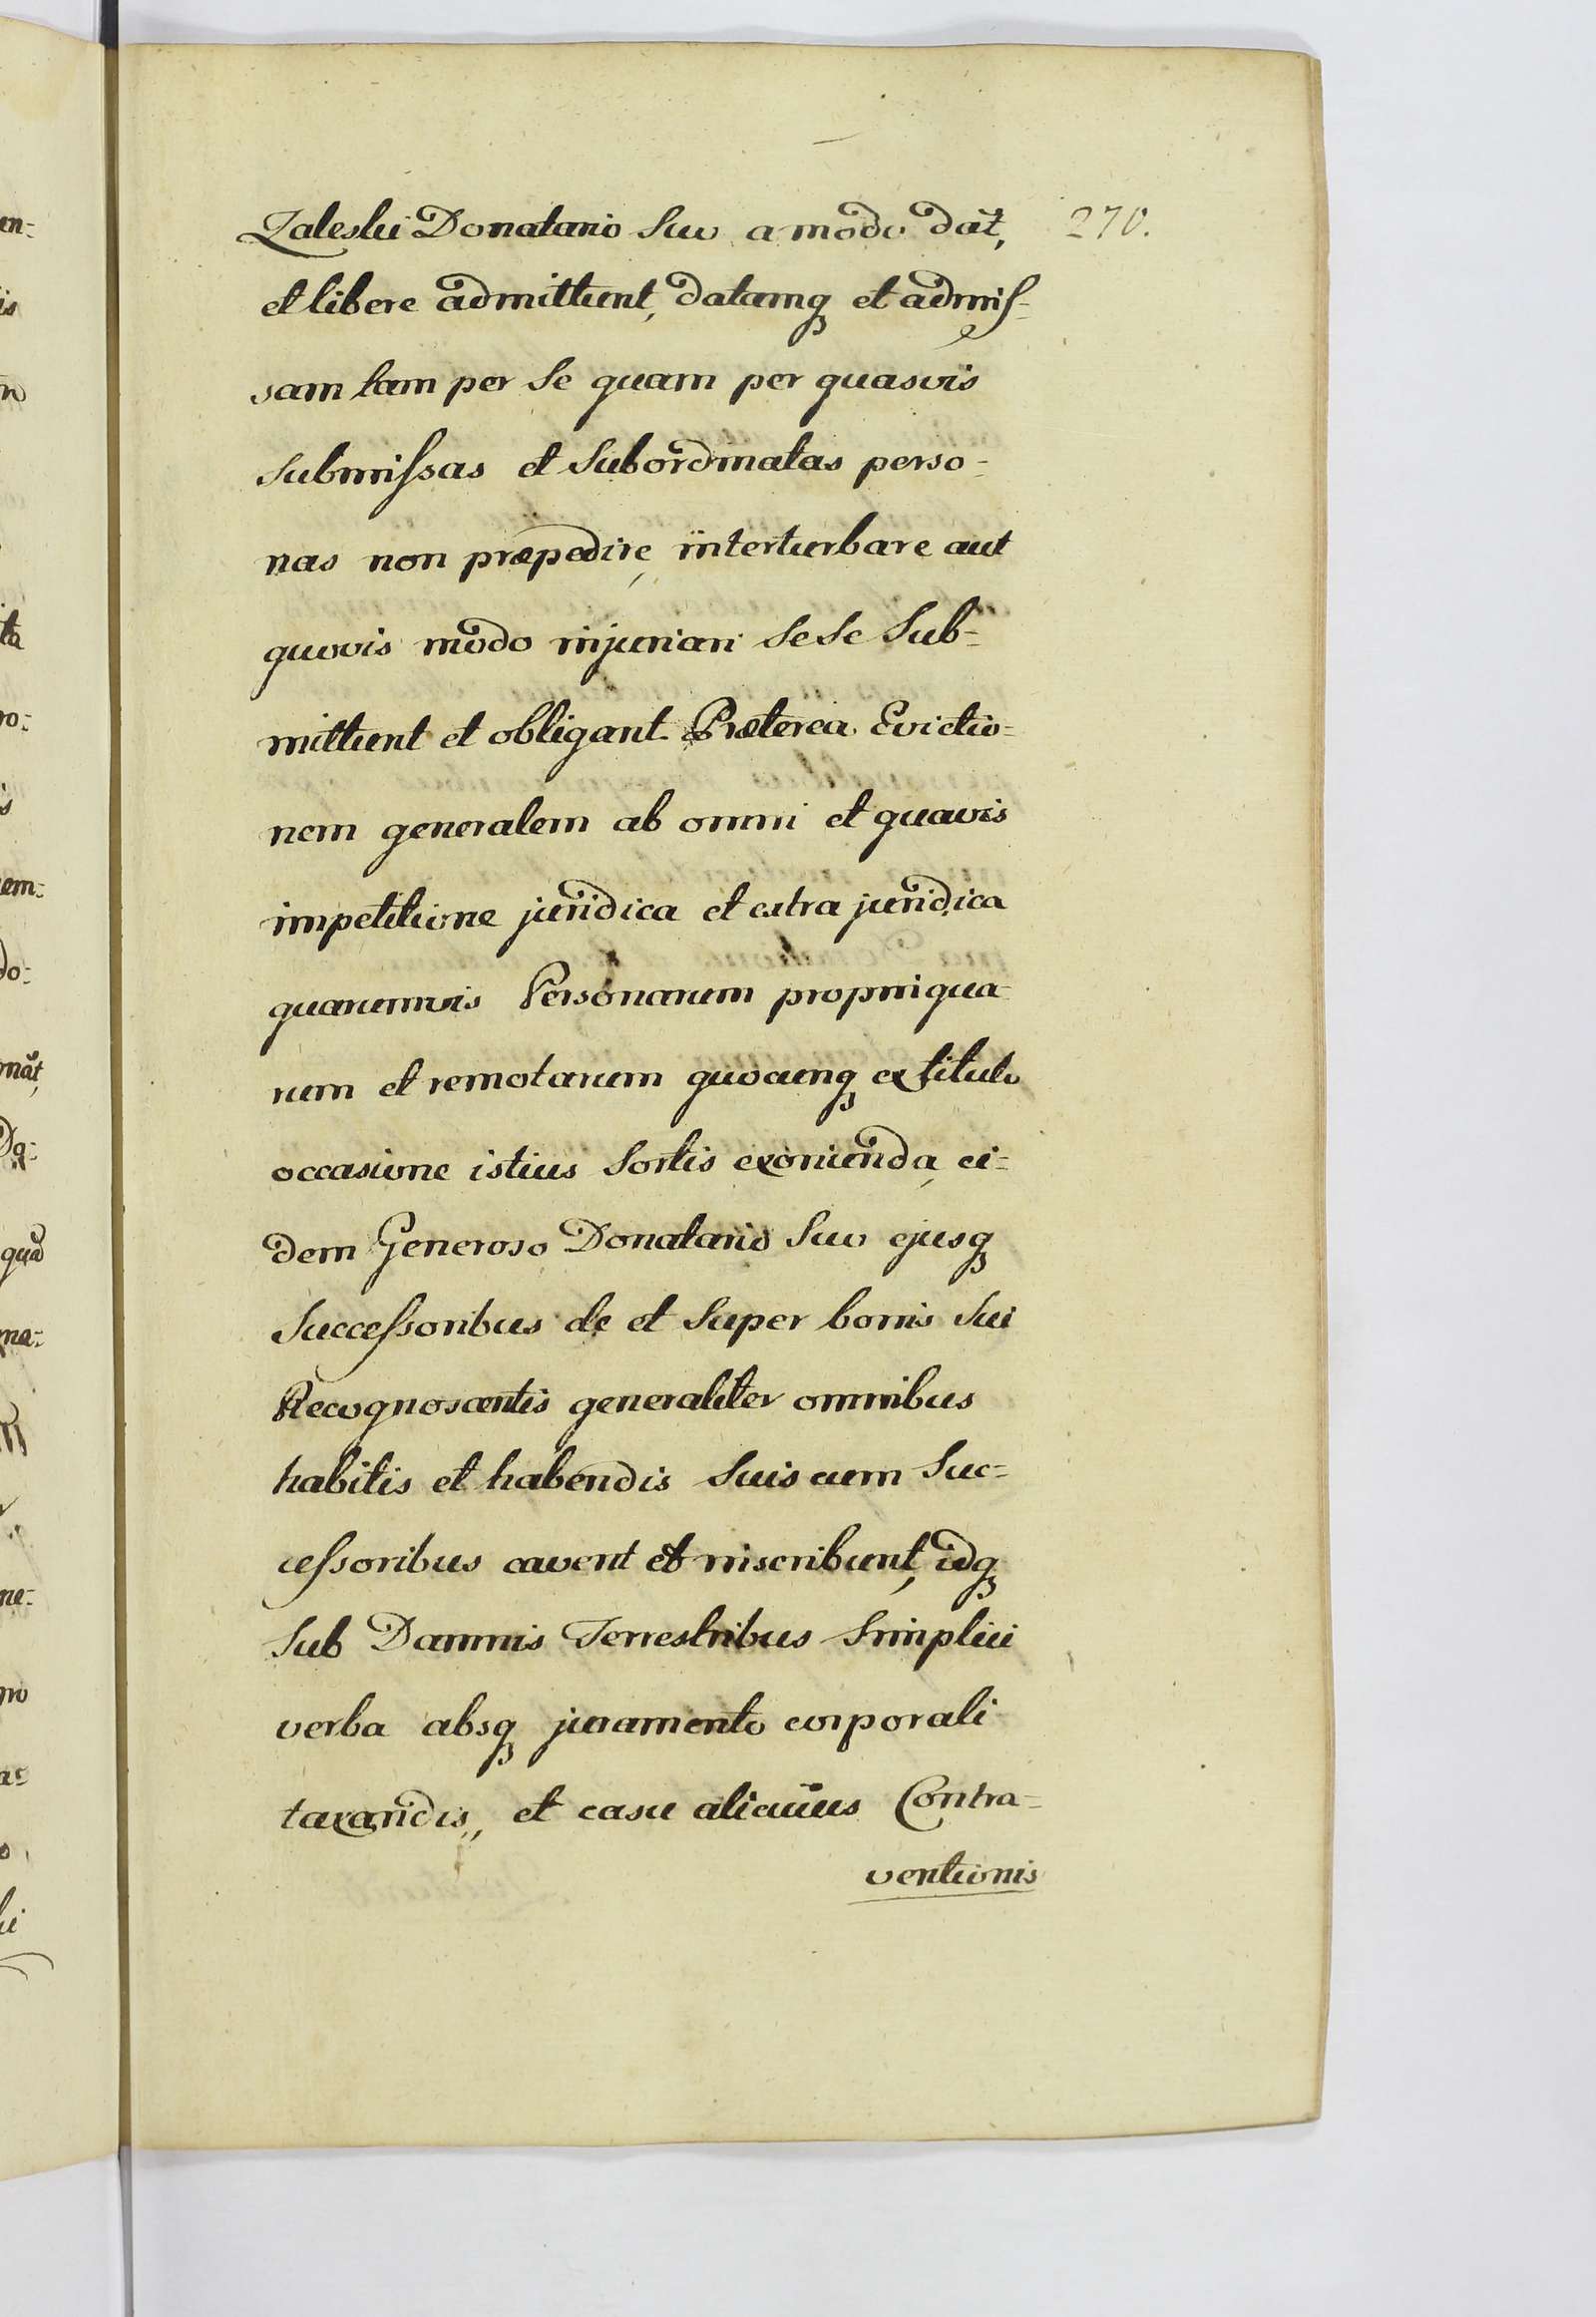 Zaleski Donatario Suo a modo dat̃, 270.
et libere admittunt, datamq̃ et admiſ-
sam tam per Se quam per quasvis
Submiſsas et Subordinatas perso-
nas non præpedire, interturbare aut
quovis modo injuriari Se Se Sub-
mittunt et obligant. Præterea Evictio-
nem generalem ab omni et quavis
impetitione juridica et extra juridica
quarumvis Personarum propinqua-
rum et remotarum quocunq̃ ex titulo
occasione istius Sortis exoriunda, ei-
dem Generoso Donatario Suo ejusq̃
Succeſsoribus de et Super bonis Sui
Recognoscentis generaliter omnibus
habitis et habendis Suis cum Suc-
ceſsoribus cavent et inscribunt, idq̃
Sub Damnis Terrestribus Simplici
verba absq̃ juramento corporali
taxandis, et casu alicuius Contra-
ventionis